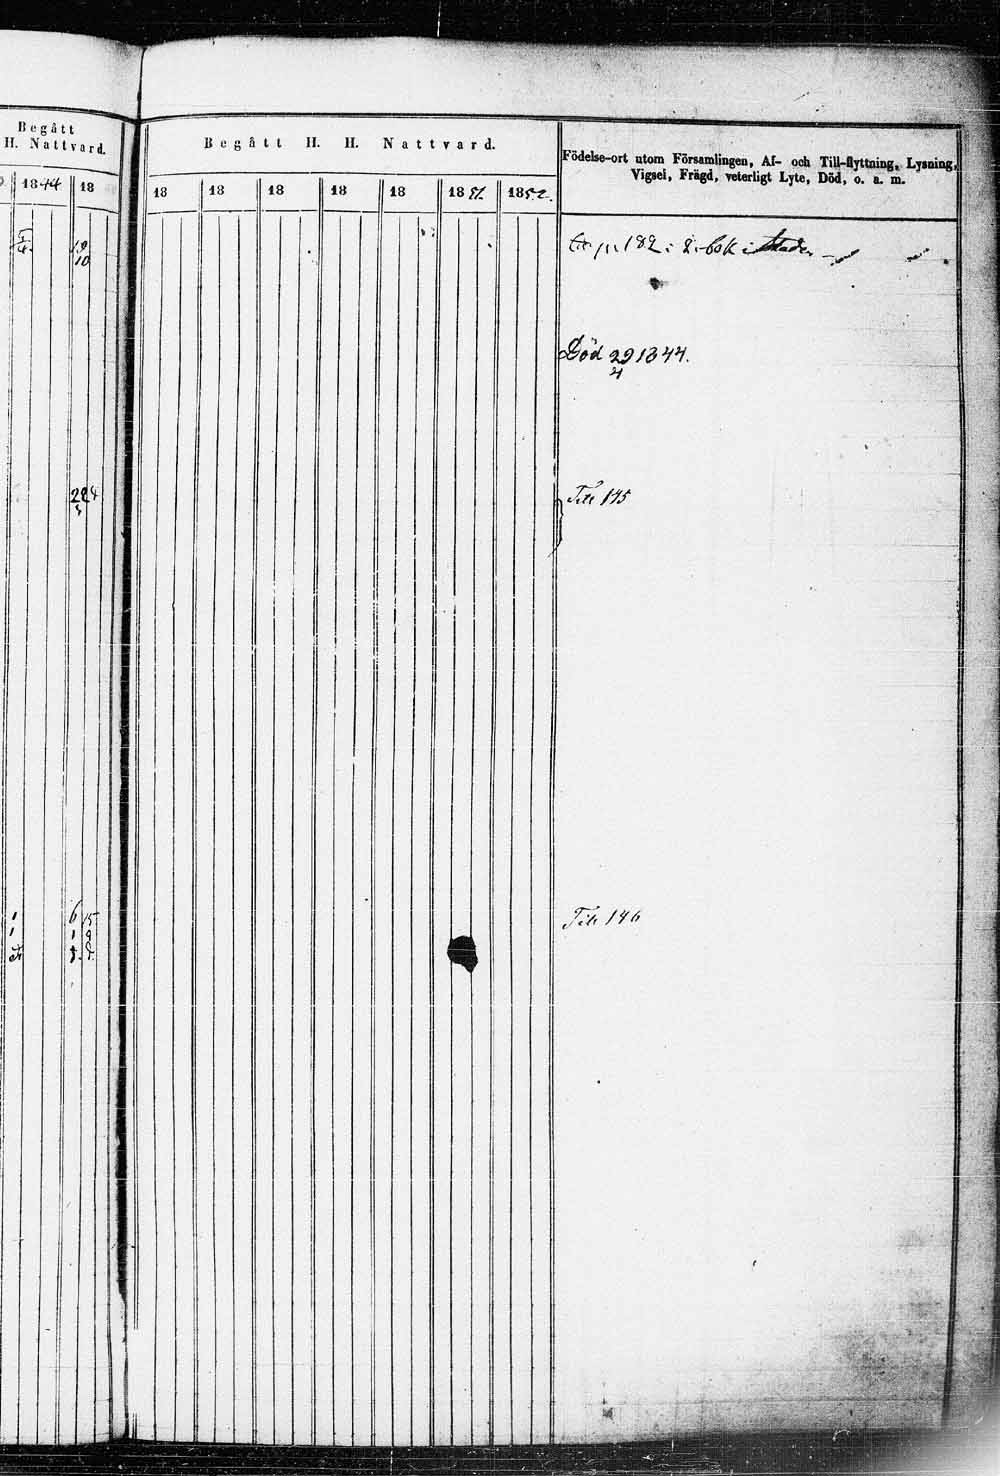 Begått
H. Nattvard.
1844 18
19
10
224
1 6 15
1 1 9
Begått H. H. Nattvard.
18 18 18 18 18 1851. 1852.
Födelse-ort utom Församlingen, Af- och Till-flyttning, Lysning,
Vigsel, Frägd, veterligt Lyte, Död, o. a. m.
182 i 2. bok
Död 29 1844.
4
Till 145
Till 146